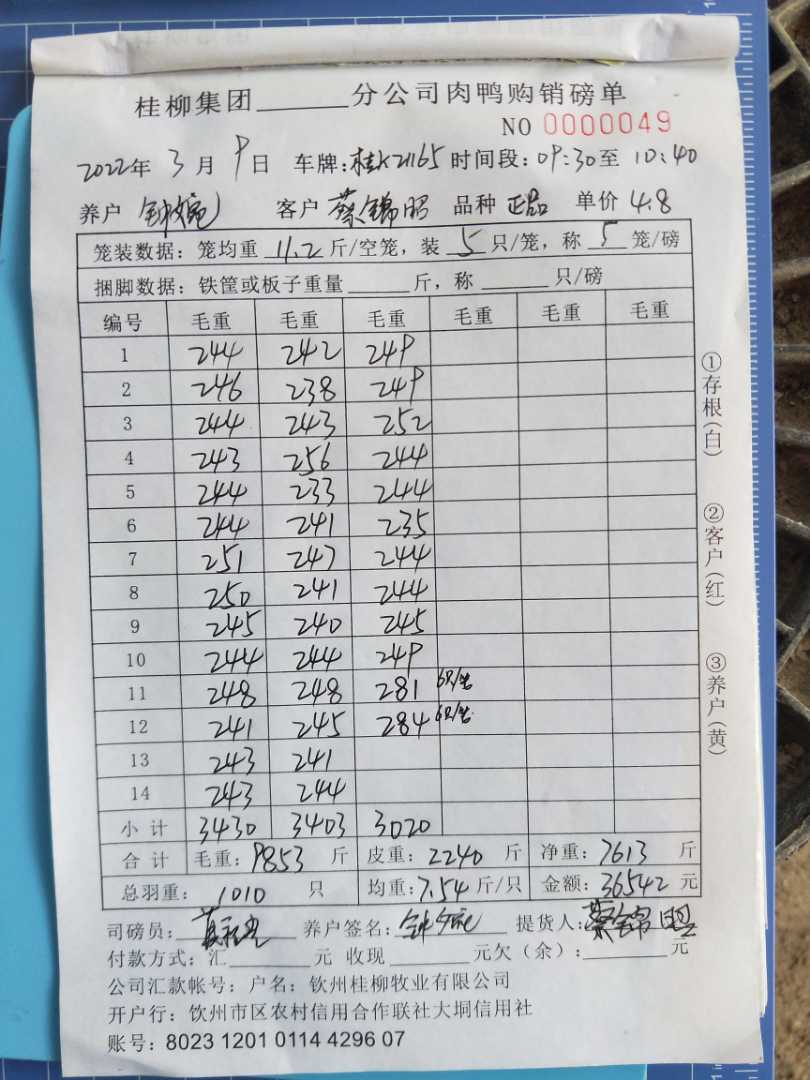 桂柳集团______分公司肉鸭购销磅单
NO 0000049
2022年 3 月 9 日 车牌:桂K21165 时间段:09:30至 10:40
养户 客户 蔡锦昭 品种 正品 单价 4.8
笼装数据:笼均重 11.2 斤/空笼,装 5 只/笼,称 5 笼/磅
捆脚数据:铁筐或板子重量______斤,称______只/磅
编号 毛重 毛重 毛重 毛重 毛重 毛重
1 244 242 249
2 246 238 249
3 244 243 252
4 243 256 244
5 244 233 244
6 244 241 235
7 251 247 244
8 250 241 244
9 245 240 245
10 244 244 249
11 248 248 281 6只/笼
12 241 245 284 6只/笼
13 243 241
14 243 244
小计 3430 3403 3020
合计 毛重:9853 斤 皮重:2240 斤 净重:7613 斤
总羽重: 1010 只 均重:7.54 斤/只 金额:36542 元
司磅员: 养户签名: 提货人:蔡锦昭
付款方式:汇______元 收现______元欠(余):______元
公司汇款帐号:户名:钦州桂柳牧业有限公司
开户行:钦州市区农村信用合作联社大垌信用社
账号:8023 1201 0114 4296 07
①存根(白)
②客户(红)
③养户(黄)